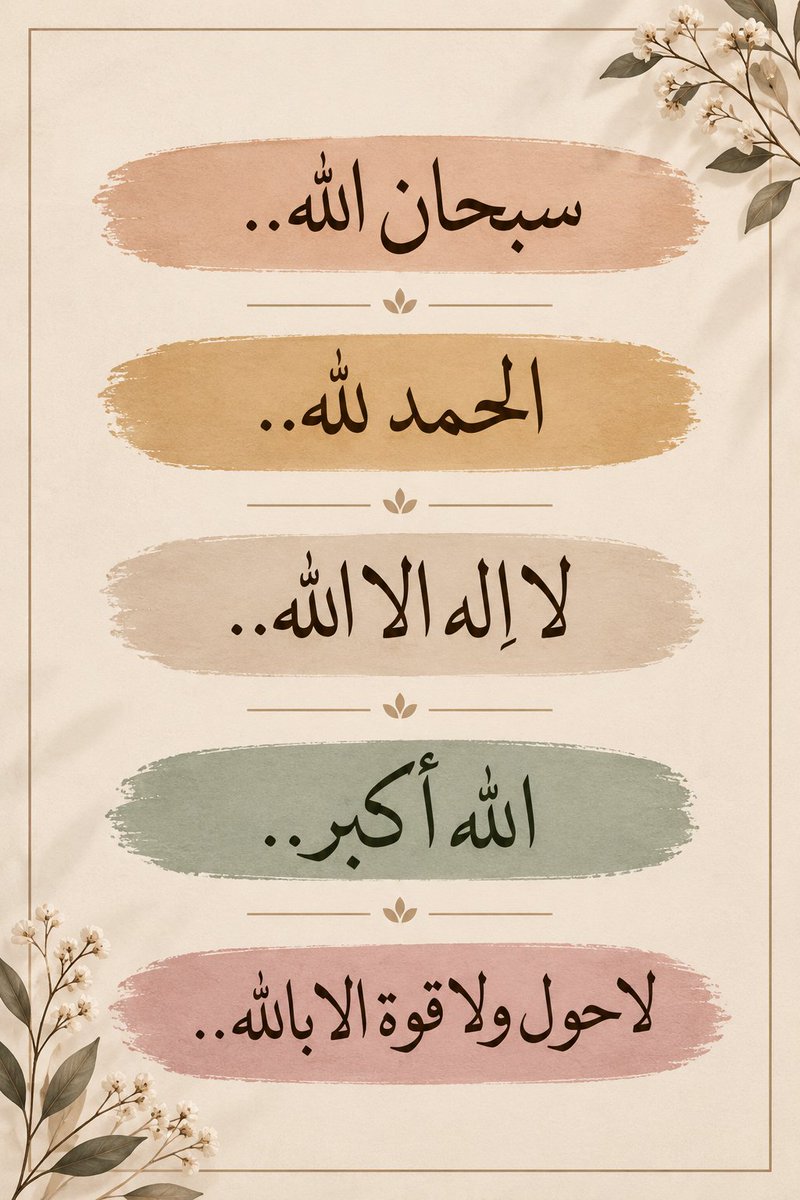 سبحان الله..
الحمد لله..
لا اِله الا الله..
الله أكبر..
لا حول ولا قوة الا بالله..